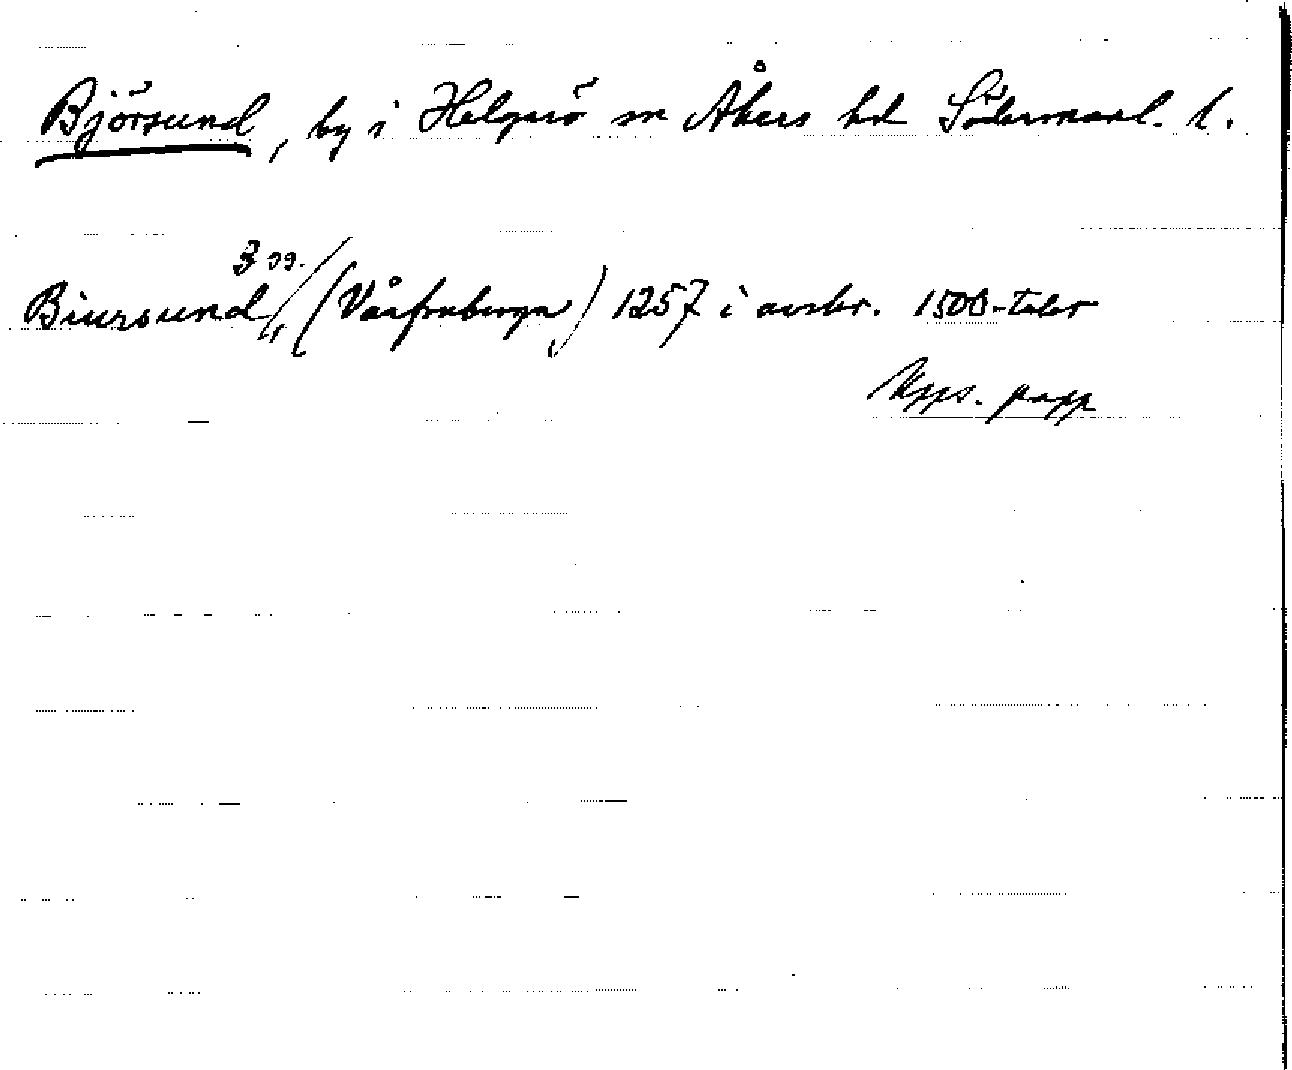 Björsund, by i Helgarö sn Åkers hd Södermanl. l.
3 gg.
Biursund,, (Vårfruberga) 1257 i avskr. 1500-talet
Upps. papp